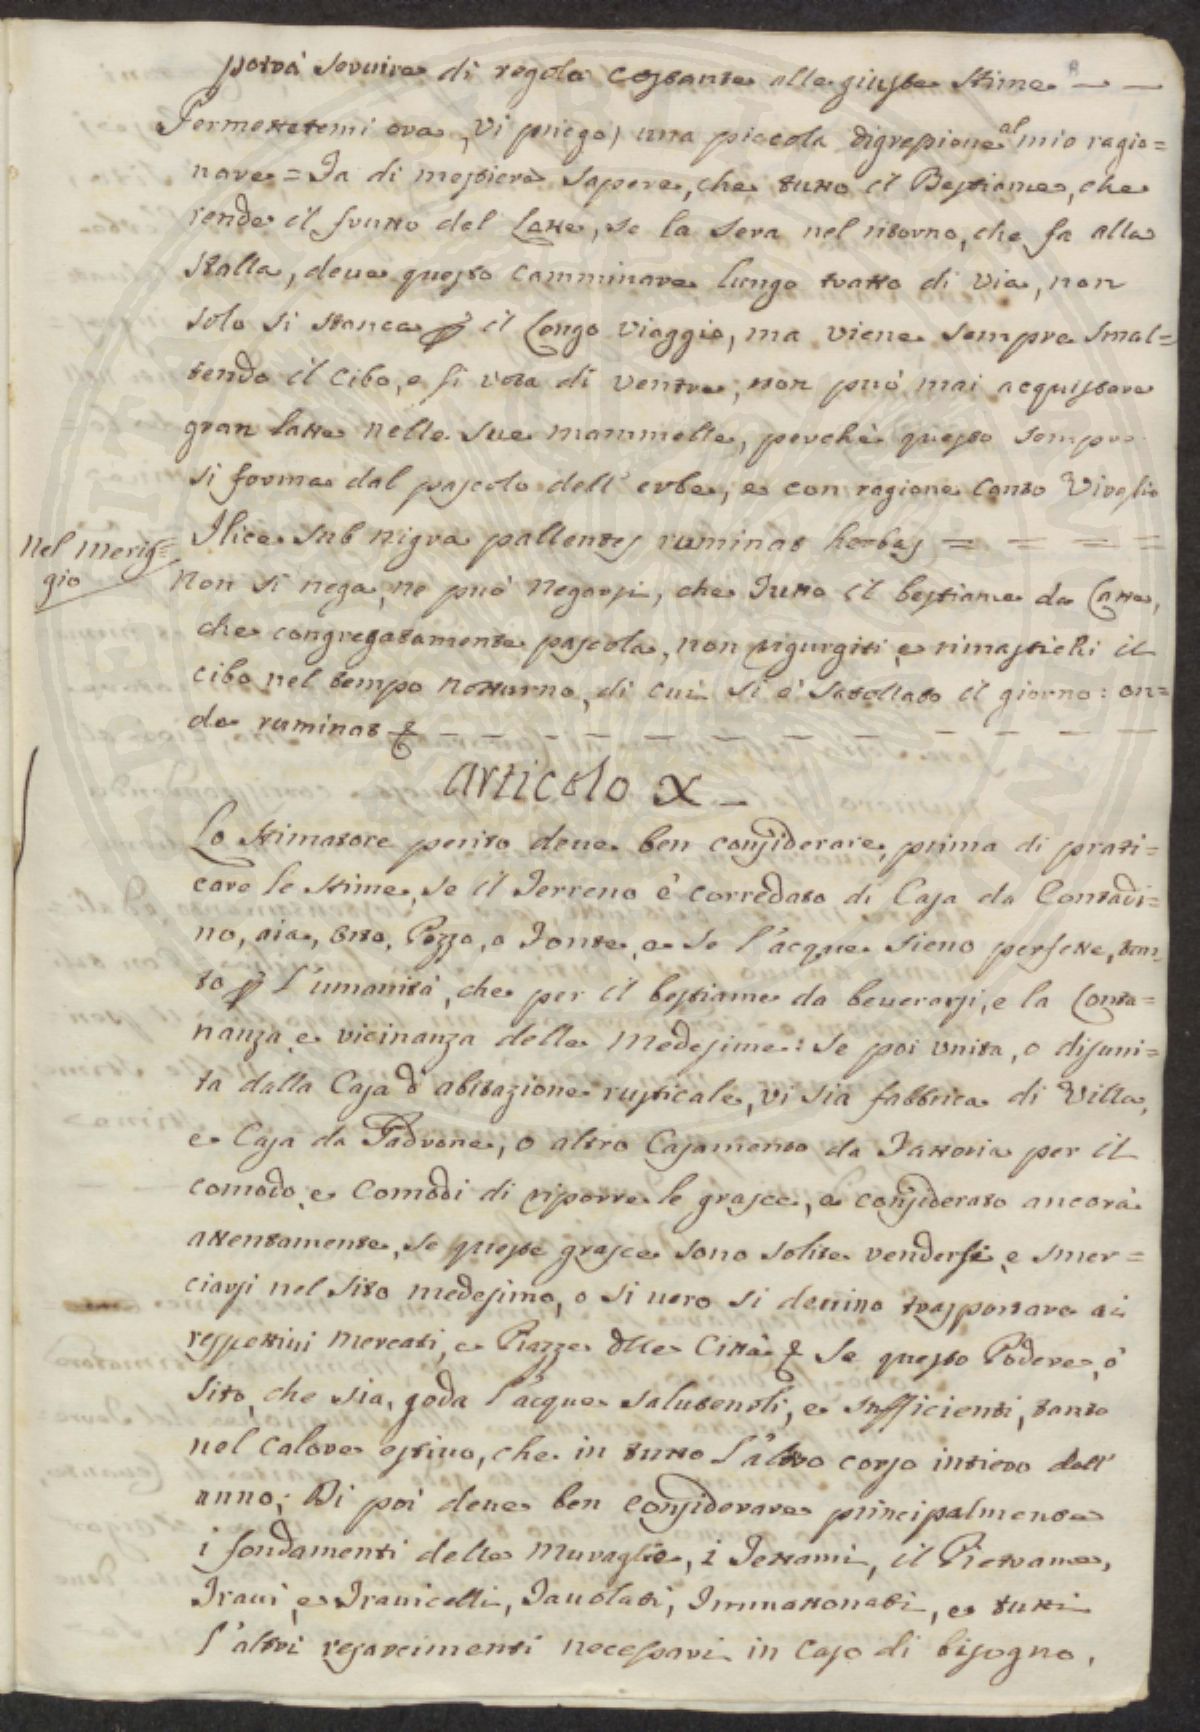 potrà servire di regola costante alle giuste stime — —
Permettetemi ora, vi priego, una piccola digressione al mio ragio=
nare = Fa di mestiere sapere, che tutto il Bestiame, che
rende il frutto del Latte, se la sera nel ritorno, che fa alla
stalla, deve questo camminare lungo tratto di via, non
solo si stanca p il longo viaggio, ma viene sempre smal=
tendo il cibo, e si vota di ventre, non può mai acquistare
gran latte nelle sue mammelle, perchè questo sempre
si forma dal pascolo dell' erbe, e con ragione canto Virgilio
Nel Merig=
gio
Ilice sub nigra pallentes ruminat herbas = = = =
Non si nega, ne può negarsi, che Tutto il bestiame da Latte,
che congregatamente pascola, non rigurgiti, e rimastichi il
cibo nel tempo notturno, di cui si è satollato il giorno: on=
de ruminat & — — — — — — — — — —
Articolo X —
Lo stimatore perito deve ben considerare, prima di prati=
care le stime, se il Terreno è corredato di Casa da Contadi=
no, aia, orto, Pozzo, o Fonte, e se l'acque sieno perfette, tan=
to p l'umanità, che per il bestiame da beverarsi, e la Lonta=
nanza, e vicinanza delle Medesime: Se poi unita, o disuni=
ta dalla Casa d' abitazione rusticale, vi sia fabbrica di Villa,
e Casa da Padrone, o altro Casamento da Fattoria per il
comodo, e Comodi di riporre le grasce, e considerato ancora
attentamente, se queste grasce sono solite vendersi, e smer=
ciarsi nel sito medesimo, o si vero si devino trasportare ai
respettivi Mercati, e Piazze delle Città & Se questo Podere, ò
sito, che sia, goda l'acque salutevoli, e sufficienti, tanto
nel calore estivo, che in tutto l'altro corso intiero dell'
anno; Di poi deve ben considerare principalmente
i fondamenti delle Muraglie, i Tettami, il Pietrame,
Travi, e Travicelli, Tavolati, Immattonati, e tutti
l'altri resarcimenti necessari in caso di bisogno,